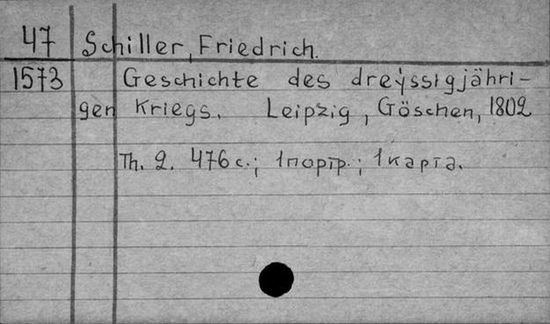 47 Schiller, Friedrich.
1573 Geschichte des dreÿssigjähri-
gen Kriegs. Leipzig, Göschen, 1802
Th. 2. 476 с.; 1 портр.; 1 карта.